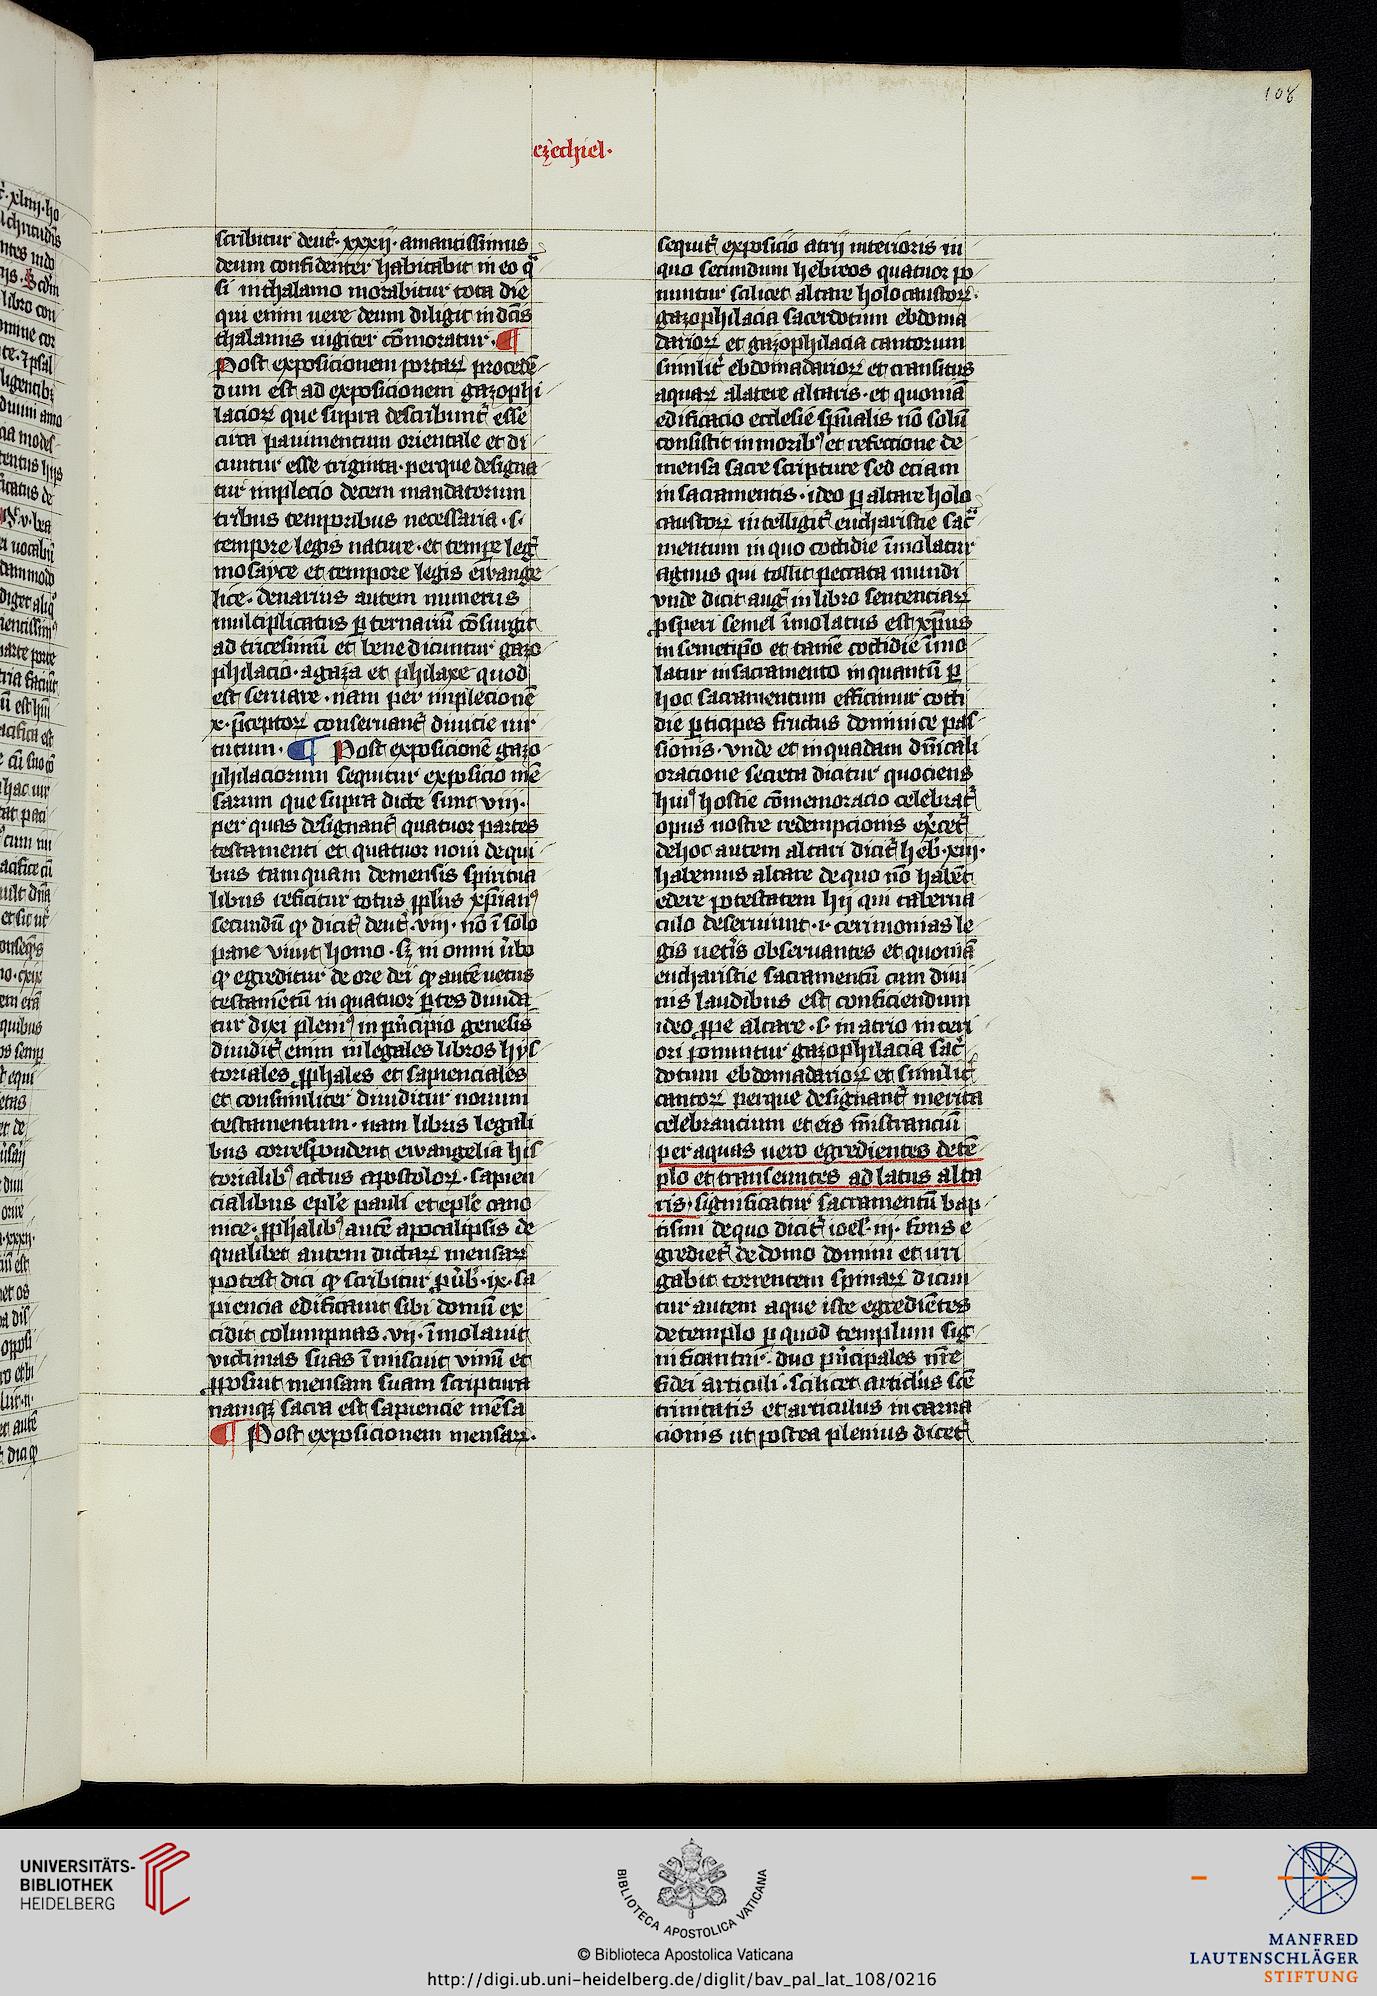 108
ezechiel·
scribitur deut̉· xxxij· amantissimus
deum confidenter habitabit in eo qͣ
si in thalamo morabitur tota die
qui enim uere deum diligit in dcīs
thalamis iugiter cōmoratur· ¶
Post exposicionem portaꝝ procedē
dum est ad exposicionem gazophi
lacioꝝ que supra describunt̉ esse
circa pauimentum orientale et di
cuntur esse triginta· per que designa
tur implecio decem mandatorum
tribus temporibus necessaria ·s·
tempore legis nature· et temꝑe leg̉
mosayce et tempore legis ewange
lice· denarius autem numerus
multiplicatus ꝑ ternariū cōsurgit
ad tricesimū et bene dicuntur gazo
philacio· a gaza et philaxe quod
est seruare· nam per implecionē
x· p̄ceptoꝝ conseruant̉ diuicie uir
tutum· ¶ Post exposicionē gazo
philaciorum sequitur exposicio mē
sarum que supra dicte sunt viii·
per quas designant̉ quatuor partes
testamenti et quatuor noui de qui
bus tamquam de mensis spiritua
libus reficitur totus pplūs xp̄ianꝰ
secundū ꝙ dicit̉ deut̉· viii· nō ī solo
pane viuit homo· sꝫ in omni u̓bo
ꝙ egreditur de ore dei ꝙ autē uetus
testamētū in quatuor ꝑtes diuida
tur dixi pleniꝰ in pͥncipio genesis
diuidit̉ enim in legales libros hys
toriales ꝓphales et sapienciales
et consimiliter diuiditur nouum
testamentum· nam libris legali
bus correspondent ewangelia his
torialibꝰ actus apostoloꝝ· sapien
cialibus eplē pauli et eplē cano
nice· ꝓphalibꝰ autē apocalipsis de
qualibet autem dictaꝝ mensaꝝ
potest dici ꝙ scribitur pͥub̉· ix· sa
piencia edificauit sibi domū ex
cidit columpnas· vij· īmolauit
victimas suas ī miscuit vinū et
ꝓposuit mensam suam scriptura
namqꝫ sacra est sapiencie mēsa
¶ Post exposicionem mensaꝝ·
sequit̉ exposicio atrij interioris in
quo secundum hebreos quatuor po
nuntur scilicet altare holocaustoꝝ·
gazophilacia sacerdotum ebdoma
darioꝝ et gazophilacia cantorum
similit̉ ebdomadarioꝝ et transitus
aquaꝝ a latere altaris· et quoniā
edificacio ecclesie spūalis nō solū
consistit in moribꝰ et refectione de
mensa sacre scripture sed etiam
in sacramentis· ideo ꝑ altare holo
caustoꝝ intelligit̉ eucharistie sac̉
mentum in quo cottidie īmolatur
agnus qui tollit peccata mundi
vnde dicit aug̉ in libro sentenciaꝝ
ꝓsperi semel īmolatus est xp̄us
in semetipo et tamē cottidie īmo
latur in sacramento in quantū ꝑ
hoc sacramentum efficimur cotti
die ꝑticipes fructus dominice pas
sionis· vnde et in quadam dn̄icali
oracione secreta dicitur quociens
huiꝰ hostie cōmemoracio celebrat̉
opus nostre redempcionis ex̓cet̉
de hoc autem altari dicit̉ heb̉· xiii·
habemus altare de quo nō habēt
edere potestatem hij qui taberna
culo deseruiunt ·i· cerimonias le
gis uet̉is obseruantes et quoniā
eucharistie sacramentū cum diui
nis laudibus est conficiendum
ideo ꝓpe altare ·s· in atrio interi
ori ponuntur gazophilacia sac̉
dotum ebdomadarioꝝ et similit̉
cantoꝝ per que designant̉ merita
celebrancium et eis mīstranciū
per aquas uero egredientes de tē
plo et transeuntes ad latus alta
ris· significatur sacramentū bap
tismi de quo dicit̉ ioel· iij· fons e
grediet̉ de domo domini et irri
gabit torrentem spinaꝝ dicun
tur autem aque iste egrediētes
de templo ꝑ quod templum sig
nificantur· duo pͥncipales nr̄e
fidei articuli· scilicet articlūs scē
trinitatis et articulus incarna
cionis ut postea plenius dicet̉
UNIVERSITÄTS-
BIBLIOTHEK
HEIDELBERG
BIBLIOTECA APOSTOLICA VATICANA
© Biblioteca Apostolica Vaticana
http://digi.ub.uni-heidelberg.de/diglit/bav_pal_lat_108/0216
MANFRED
LAUTENSCHLÄGER
STIFTUNG